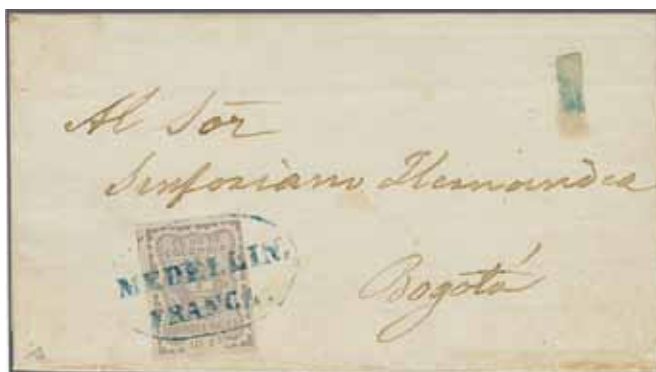 Al Sōr
Sinforiano Hernandez
MEDELLIN.
FRANCA.
Bogotá